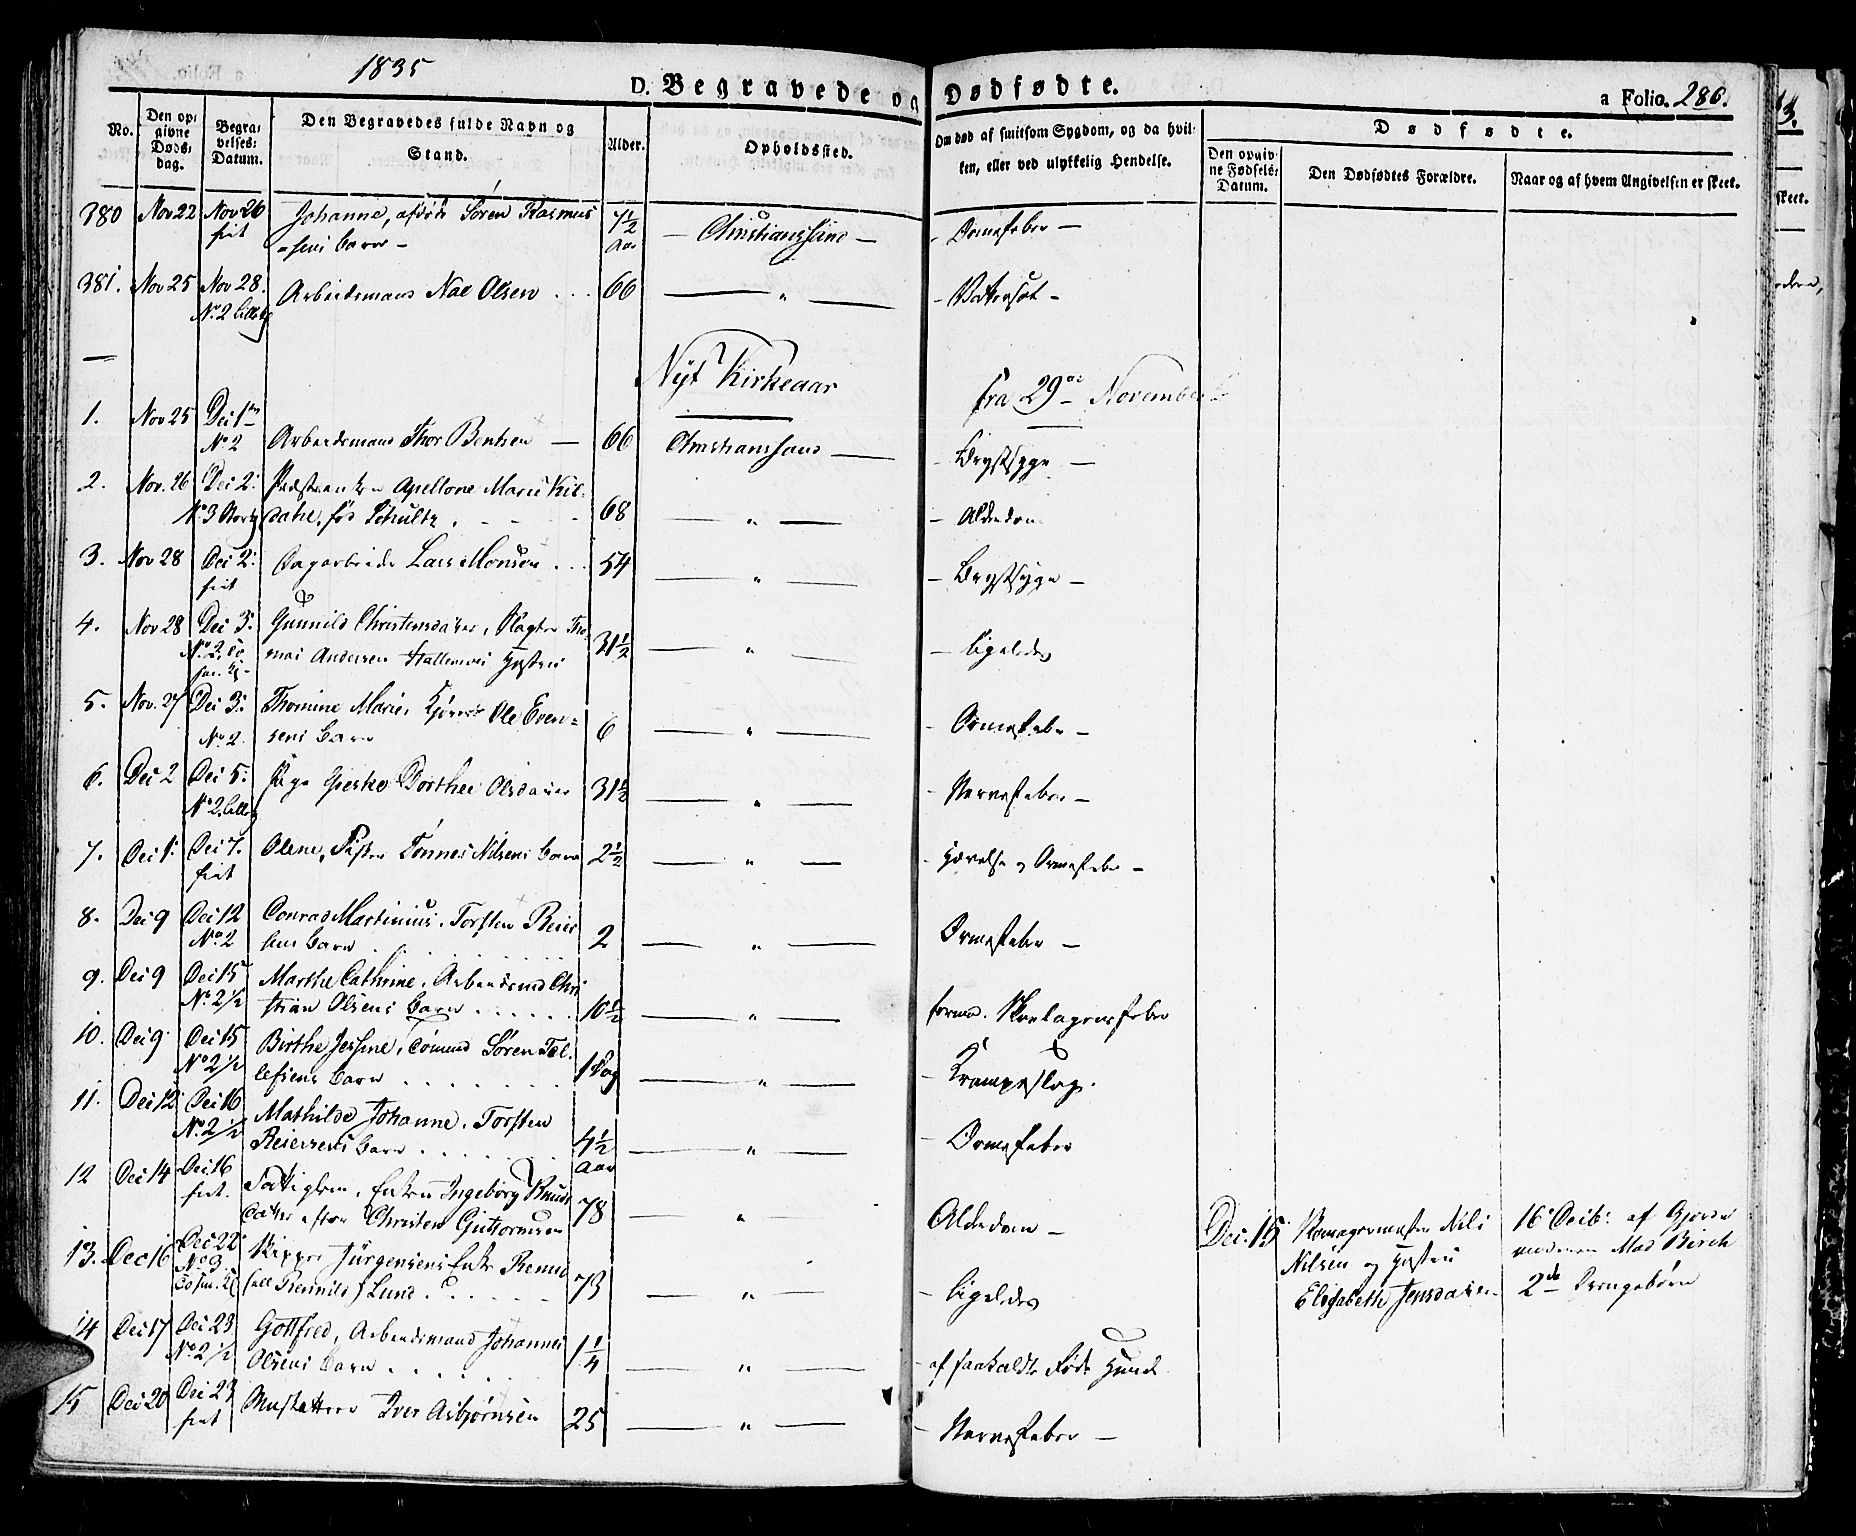 1835
D. Begravede og Dødfødte.
a Folio. 286.
No.
Den opgivne Dødsdag.
Begravelses-Datum.
Den Begravedes fulde Navn og Stand.
Alder.
Opholdssted.
Om død af smitsom Sygdom, og da hvilken, eller ved ulykkelig Hendelse.
Dødfødte.
Den opgivne Fødsels-Datum.
Den Dødfødtes Forældre.
Naar og af hvem Angivelsen er skeet.
380 Nov 22 Nov 26 Johanne, afdøde Søren Rasmus 7½ — Christianssand — - Ormefeber —
frit -sens barn - Aar
381. Nov 25 Nov 28. Arbeidsmand Nae Olsen . . . 66 — " — - Vatersot -
No. 2
— Nyt Kirkeaar fra 29de November
1. Nov 25 Dec 1
No 2 Arbeidsmand Thor Bentsen — 66 Christianssand — - Brystsyge —
2. Nov. 26 Dec 2. Apellone Marie Kil-
No 3 dahl, fød Schultz . - - - 68 — " — - Alderdom
3. Nov 28 Dec 2. Dagarbeider Lars Monsen . . . 54 — " — - Brystsyge —
frit
4. Nov 28 Dec 3. Gunnild Christensdatter, Tho-
No. 2 mas Andersen Hustru 31½ — " — - ligeledes
5. Nov. 27 Dec 3. Thomine Marie, Ole Even-
No. 2. sens Barn 6 — " — - Ormefeber —
6. Dec 2 Dec 5. Pige Gieske Dorthea Olsdatter 31½ — " — - Nervefeber —
No 2.
7. Dec 1. Dec 7. Olene, Tønnes Nilsens Barn 2½ — " — - Hævelse og Ormefeber —
frit
8. Dec 9 Dec 12 Conrad Martinius, Torsten Reier
No 2 sens Barn . . . . 2 — " — Ormefeber —
9. Dec 9 Dec 15 Marthe Cathrine, Arbeidsmd Chri
No. 2½ stian Olsens Barn . . . . . . 10½ — " — Skarlagensfeber
10. Dec 9 Dec 15 Birthe Jessine, Tømmd Søren Tel-
No 2½ lefsens Barn . . . . . . 1 Dag — " — - Krampeslag.
11. Dec 12 Dec 16 Mathilde Johanne, Torsten
No. 2½ Reiersens Barn . . . . . 4½ Aar — " — - Ormefeber
12 Dec 14 Dec 16 Fattiglem, Enken Ingeborg Knuds
frit. datter efter Christen Guttormsen 78 — " — Alderdom —
Dec. 15 Skomagermester Nils 16 Decbr. af Gjorde
Nilsen og Hustru moderen Mad Birch
Elisabeth Jensdatter. 2de Drengebørn
13. Dec 16 Dec 22 Skipper Jürgensens Enke
No 3 Lund . . . . . 73 — " — - ligeledes
14 Dec 17 Dec 23 Gottfred, Arbeidsmand Johannes
No 2½ Olsens Barn . . . . . 1¼ — " — - af saakaldte Røde Hunde
15 Dec 20 Dec 23 Iver Asbjørnsen 25 — " — - Nervefeber —
frit